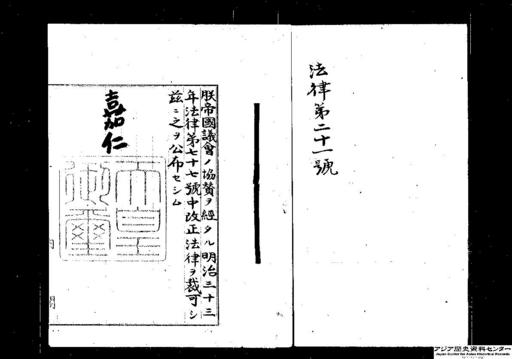 法律第二十一號
朕帝國議會ノ協贊ヲ經タル明治三十三
年法律第七十七號中改正法律ヲ裁可シ
茲ニ之ヲ公布セシム
嘉仁
天皇
御璽
アジア歴史資料センター
Japan Center for Asian Historical Records